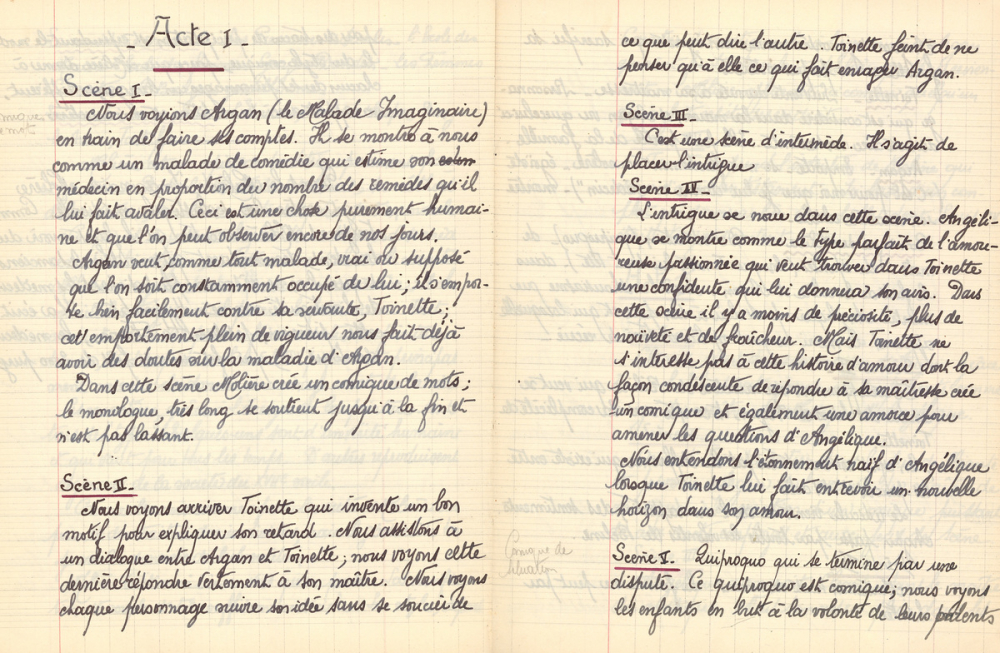 - Acte I -
Scène I -
Nous voyions Argan (le Malade Imaginaire)
en train de faire ses comptes. Il se montre à nous
comme un malade de comédie qui estime son
médecin en proportion du nombre des remèdes qu'il
lui fait avaler. Ceci est une chose purement humai-
ne et que l'on peut observer encore de nos jours.
Argan veut, comme tout malade, vrai ou supposé
que l'on soit constamment occupé de lui; il s'empor-
te bien facilement contre sa servante, Toinette;
cet emportement plein de vigueur nous fait déjà
avoir des doutes sur la maladie d'Argan.
Dans cette scène Molière crée un comique de mots;
le monologue, très long se soutient jusqu'à la fin et
n'est pas lassant.
Scène II -
Nous voyons arriver Toinette qui invente un bon
motif pour expliquer son retard. Nous assistons à
un dialogue entre Argan et Toinette; nous voyons cette
dernière répondre vertement à son maître. Nous voyons
chaque personnage suivre son idée sans se soucier de
Comique de
situation
ce que peut dire l'autre. Toinette feint de ne
penser qu'à elle ce qui fait enrager Argan.
Scène III -
C'est une scène d'intermède. Il s'agit de
placer l'intrigue
Scène IV -
L'intrigue se noue dans cette scène. Angéli-
que se montre comme le type parfait de l'amou-
reuse passionnée qui veut trouver dans Toinette
une confidente qui lui donnera son avis. Dans
cette scène il y a moins de préciosité, plus de
naïveté et de fraîcheur. Mais Toinette ne
s'intéresse pas à cette histoire d'amour dont la
façon condescente de répondre à sa maîtresse crée
un comique et également une amorce pour
amener les questions d'Angélique.
Nous entendons l'étonnement naïf d'Angélique
lorsque Toinette lui fait entrevoir un nouvelle
horizon dans son amour.
Scène V - Quiproquo qui se termine par une
dispute. Ce quiproquo est comique; nous voyons
les enfants en but à la volonté de leurs parents